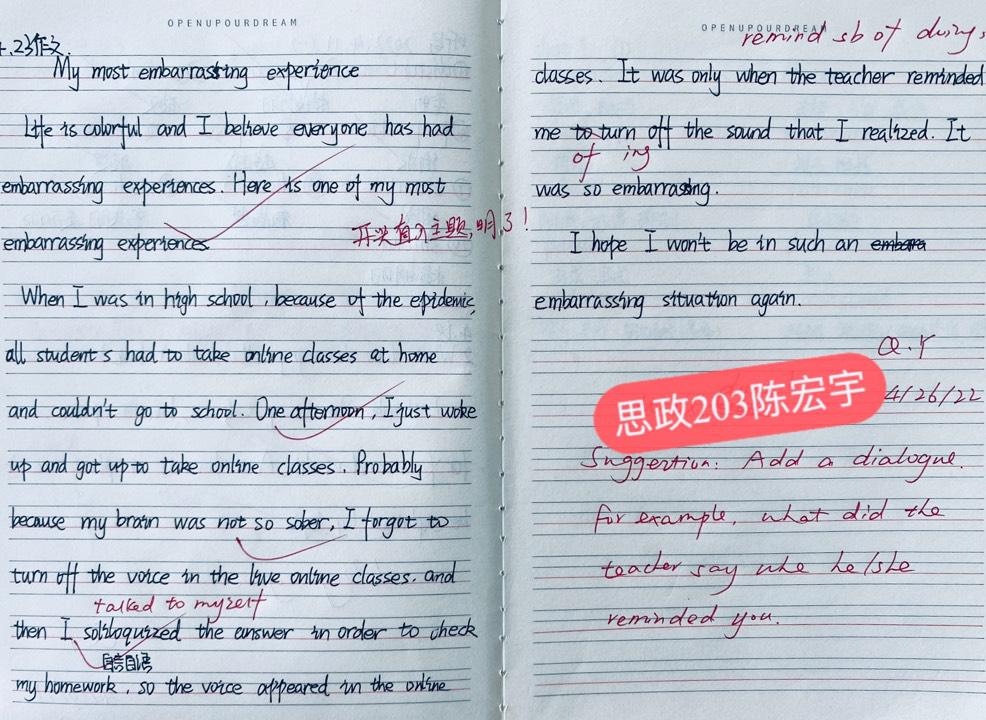 OPENUPOURDREAM
4.23作文
My most embarrassing experience
Life is colorful and I believe everyone has had
embarrassing experiences. Here is one of my most
embarrassing experiences
开头直入主题,明了!
When I was in high school, because of the epidemic,
all students had to take online classes at home
and couldn't go to school. One afternoon, I just woke
up and got up to take online classes. Probably
because my brain was not so sober, I forgot to
turn off the voice in the live online classes. and
talked to myself
then I soliloquized the answer in order to check
自言自语
my homework, so the voice appeared in the online
OPENUPOURDREAM
remind sb of doing.
classes. It was only when the teacher reminded
me to turn off the sound that I realized. It
of ing
was so embarrassing.
I hope I won't be in such an embara
embarrassing situation again.
Q.Y
4/26/22
思政203陈宏宇
Suggestion: Add a dialogue.
for example, what did the
teacher say whe he/she
reminded you.